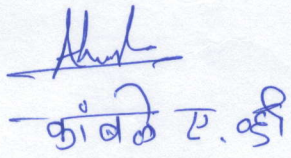 कांबळे ए. व्ही